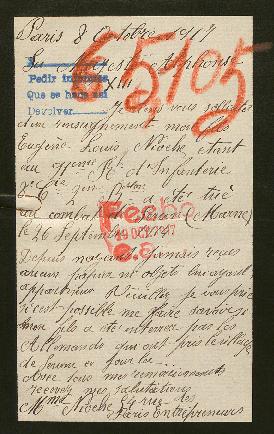 Paris 8 Octobre 1917
Sa Majesté Alphonse
XIII
65105
Pedir informes
Que se haga así
Devolver
Je viens vous solliciter
d'un renseignement mon fils
Eugène Louis Nioche, étant
au Rt d'Infanterie
6e a été tué
au combat de (Marne)
le 26 Septembre
Fecho
19 OCT. 1917
Depuis nous n'avons jamais reçu
aucun papier ni objets lui ayant
appartenu Veuillez je vous prie
s'il est possible me faire savoir si
mon fils a été enterré par les
Allemands qui ont pris le village
de ce jour là
Avec tous mes remerciements
recevez mes salutations
Mme Nioche 54 rue des
Paris Entrepreneurs